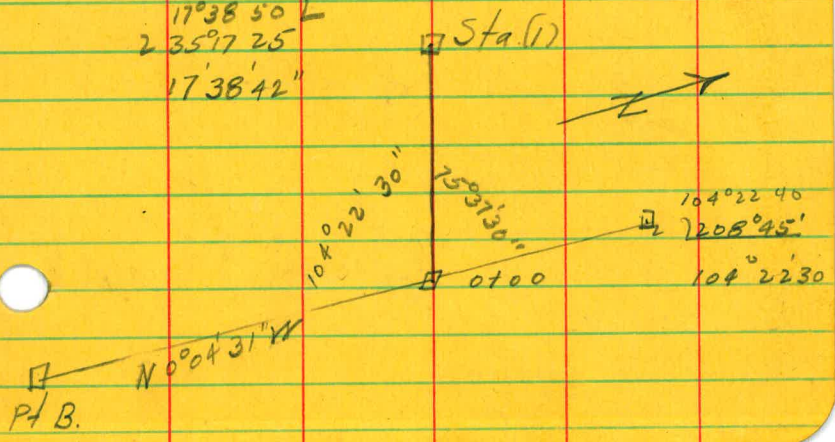 17°38 50 L
2 35°17 25
17°38'42"
Sta.(1)
N
104° 22' 30"
75°37'30"
104°22 40
2 208°45'
104° 22'30
0+00
N 0°04'31"W
Pt B.